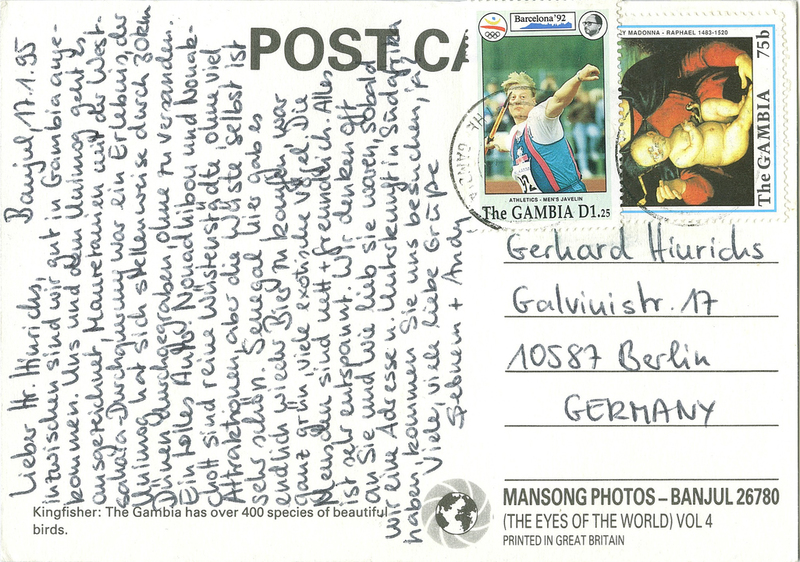 POST CA
Banjul, 17.1.95
Lieber Hr. Hinrichs,
inzwischen sind wir gut in Gambia ange-
kommen. Uns und dem Unimog geht es
ausgezeichnet. Mauretanien mit der West-
sahara-Durchquerung war ein Erlebnis, der
Unimog hat sich stellenweise durch 30km
Dünen durchgegraben ohne zu versanden.
Ein tolles Auto! Nouadhibou und Nouak-
chott sind reine Wüstenstädte ohne viel
Attraktionen, aber die Wüste selbst ist
sehr schön. Senegal hier gab es
endlich wieder Bier zu kaufen war
ganz grün viele exotische Vögel. Die
Menschen sind nett + freundlich. Alles
ist sehr entspannt. Wir denken oft
an Sie und wie lieb sie waren, sobald
wir eine Adresse u. Unterkunft in Südafrika
haben, kommen Sie uns besuchen, ja?
Viele, viele liebe Grüße
+ Andy
Kingfisher: The Gambia has over 400 species of beautiful
birds.
Barcelona '92
ATHLETICS - MEN'S JAVELIN
The GAMBIA D1.25
MADONNA - RAPHAEL 1483-1520
75b
The GAMBIA
Gerhard Hinrichs
Galvinistr. 17
10587 Berlin
GERMANY
MANSONG PHOTOS – BANJUL 26780
(THE EYES OF THE WORLD) VOL 4
PRINTED IN GREAT BRITAIN